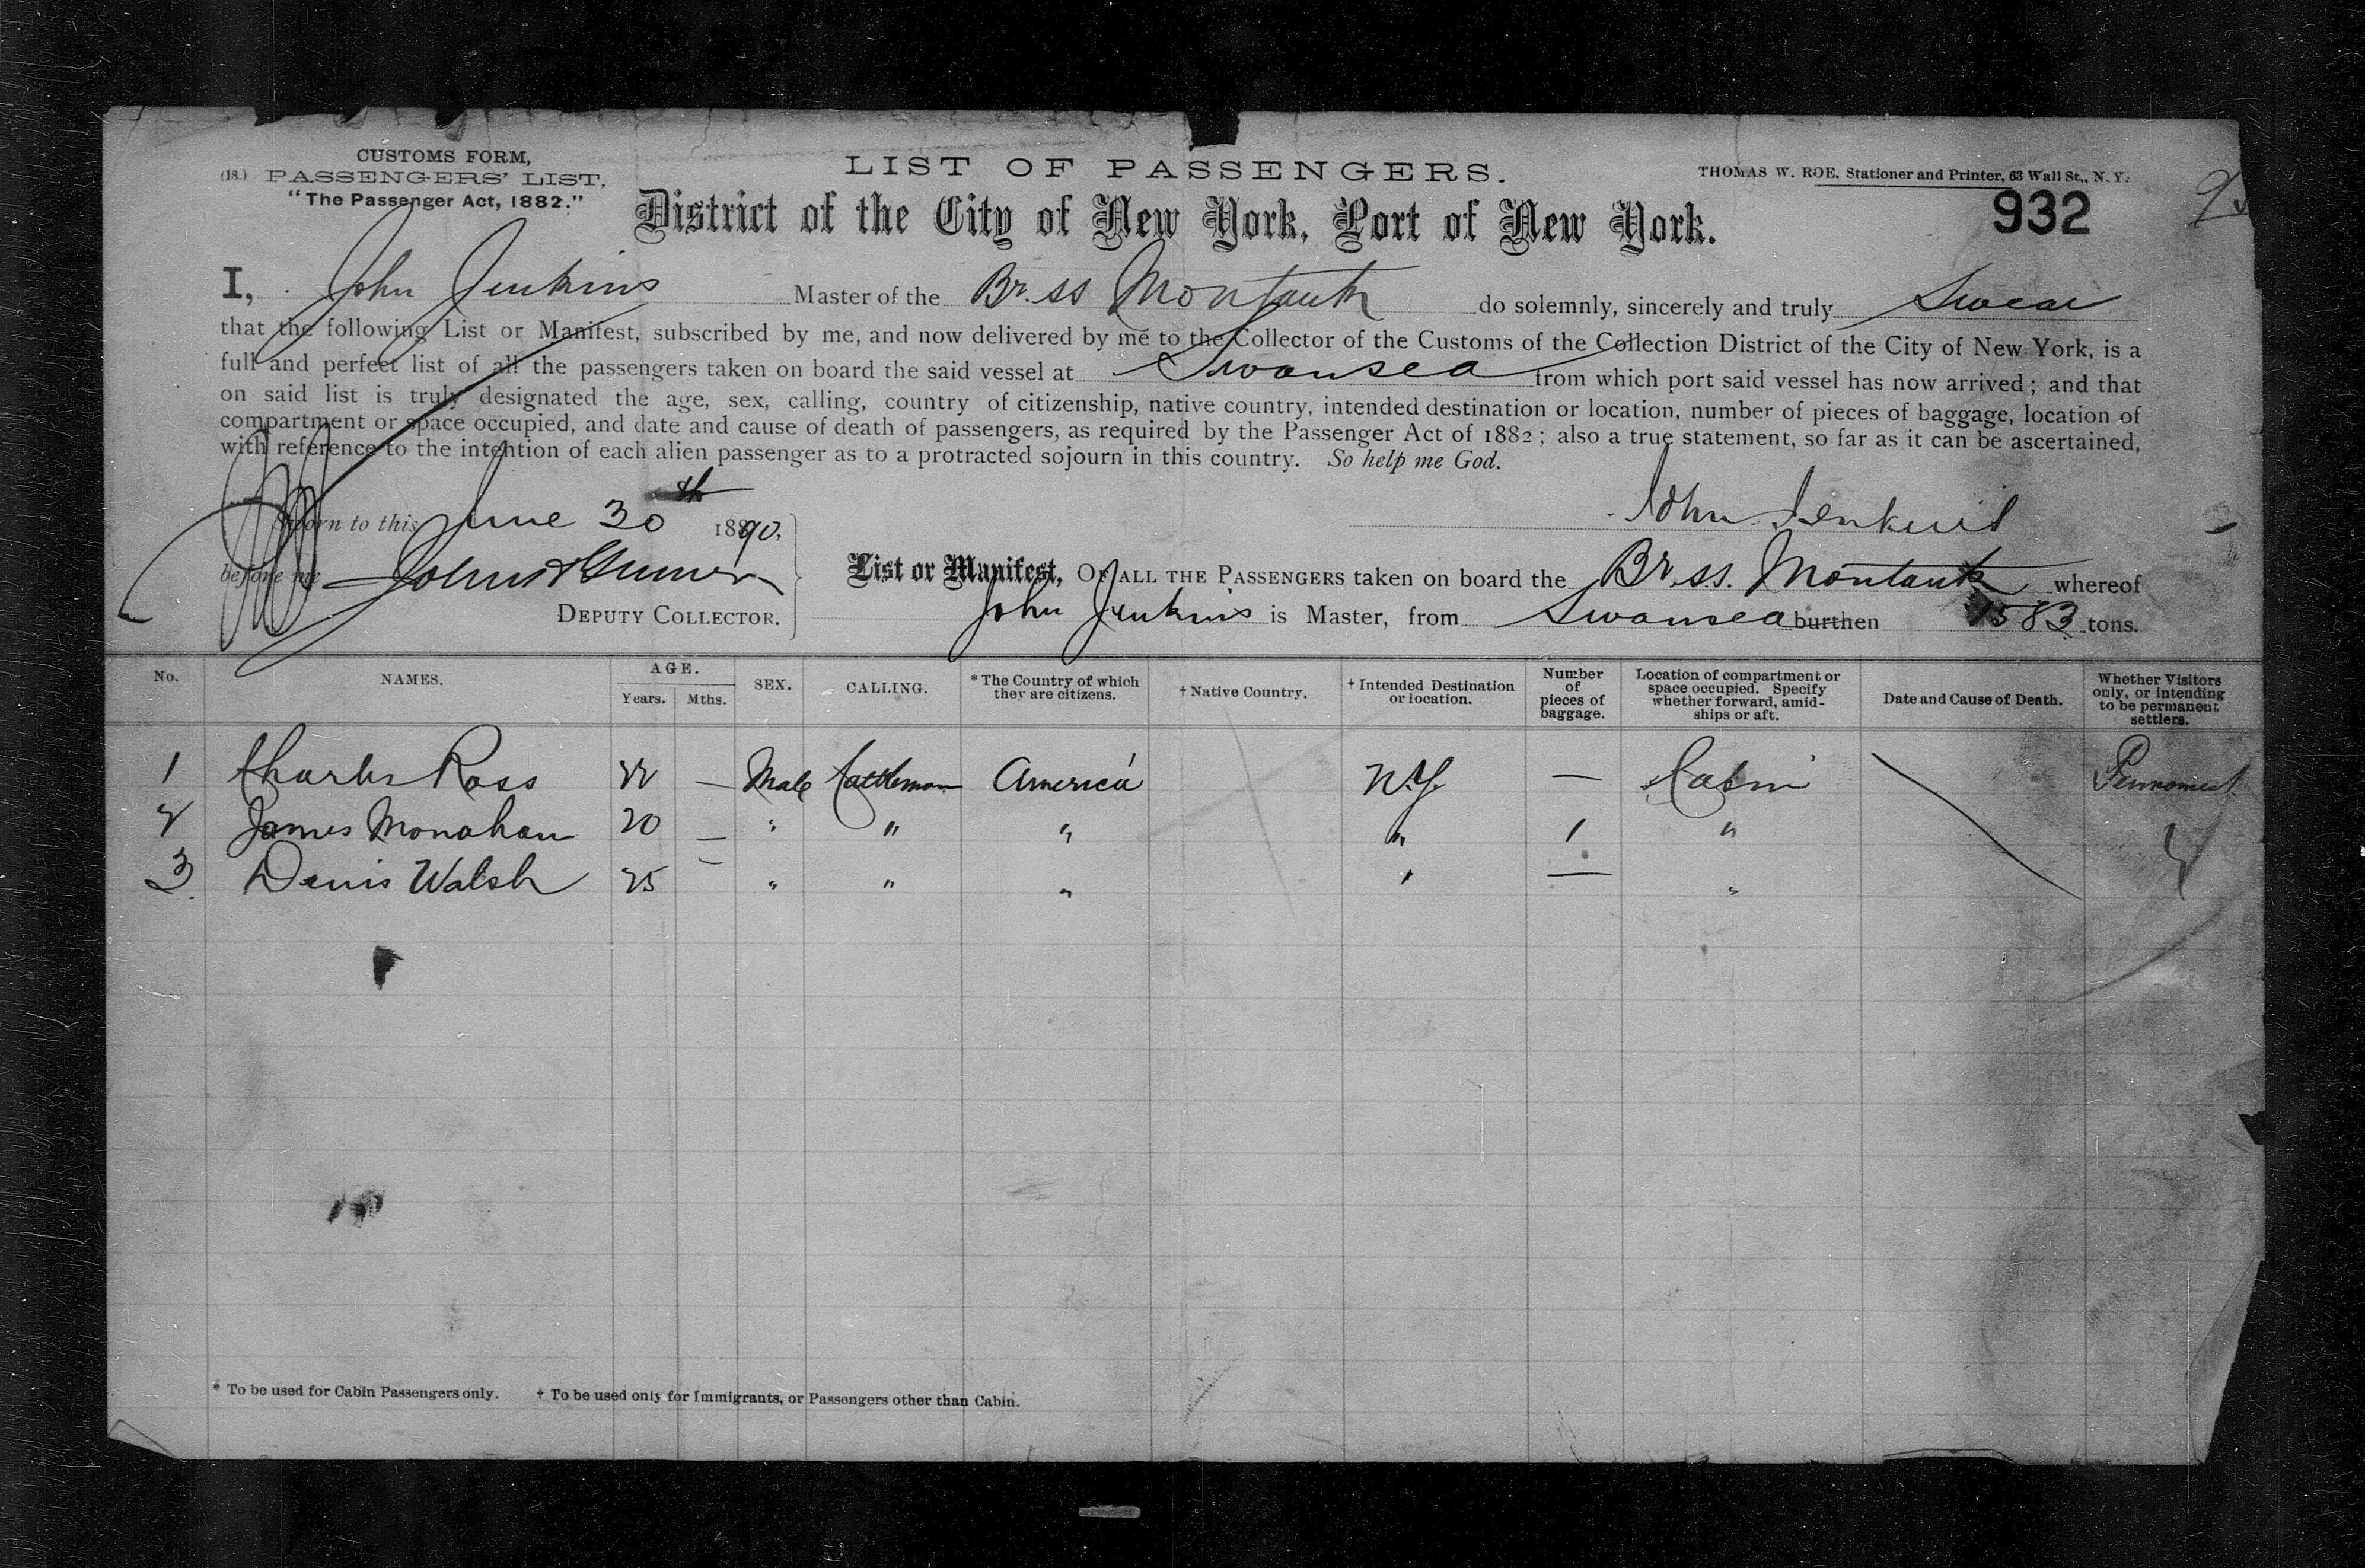 CUSTOMS FORM,
(18.) PASSENGERS' LIST.
"The Passenger Act, 1882."
LIST OF PASSENGERS.
THOMAS W. ROE, Stationer and Printer, 63 Wall St., N. Y.
District of the City of New York, Port of New York.
932
I, John Jenkins Master of the Br. ss Montauk do solemnly, sincerely and truly Swear
that the following List or Manifest, subscribed by me, and now delivered by me to the Collector of the Customs of the Collection District of the City of New York, is a
full and perfect list of all the passengers taken on board the said vessel at Swansea from which port said vessel has now arrived; and that
on said list is truly designated the age, sex, calling, country of citizenship, native country, intended destination or location, number of pieces of baggage, location of
compartment or space occupied, and date and cause of death of passengers, as required by the Passenger Act of 1882; also a true statement, so far as it can be ascertained,
with reference to the intention of each alien passenger as to a protracted sojourn in this country. So help me God.
Sworn to this June 30th 1890.
John Jenkins
before me
DEPUTY COLLECTOR.
List or Manifest, OF ALL THE PASSENGERS taken on board the Br. ss. Montauk whereof
John Jenkins is Master, from Swansea burthen 1583 tons.
No. NAMES. AGE. Years. Mths. SEX. CALLING. * The Country of which they are citizens. † Native Country. † Intended Destination or location. Number of pieces of baggage. Location of compartment or space occupied. Specify whether forward, amidships or aft. Date and Cause of Death. Whether Visitors only, or intending to be permanent settlers.
1 Charles Ross 22 — Male Cattleman America N.Y. — Cabin Permanent
2 James Monahan 20 — " " " " 1 "
3 Denis Walsh 25 — " " " " — "
* To be used for Cabin Passengers only. † To be used only for Immigrants, or Passengers other than Cabin.